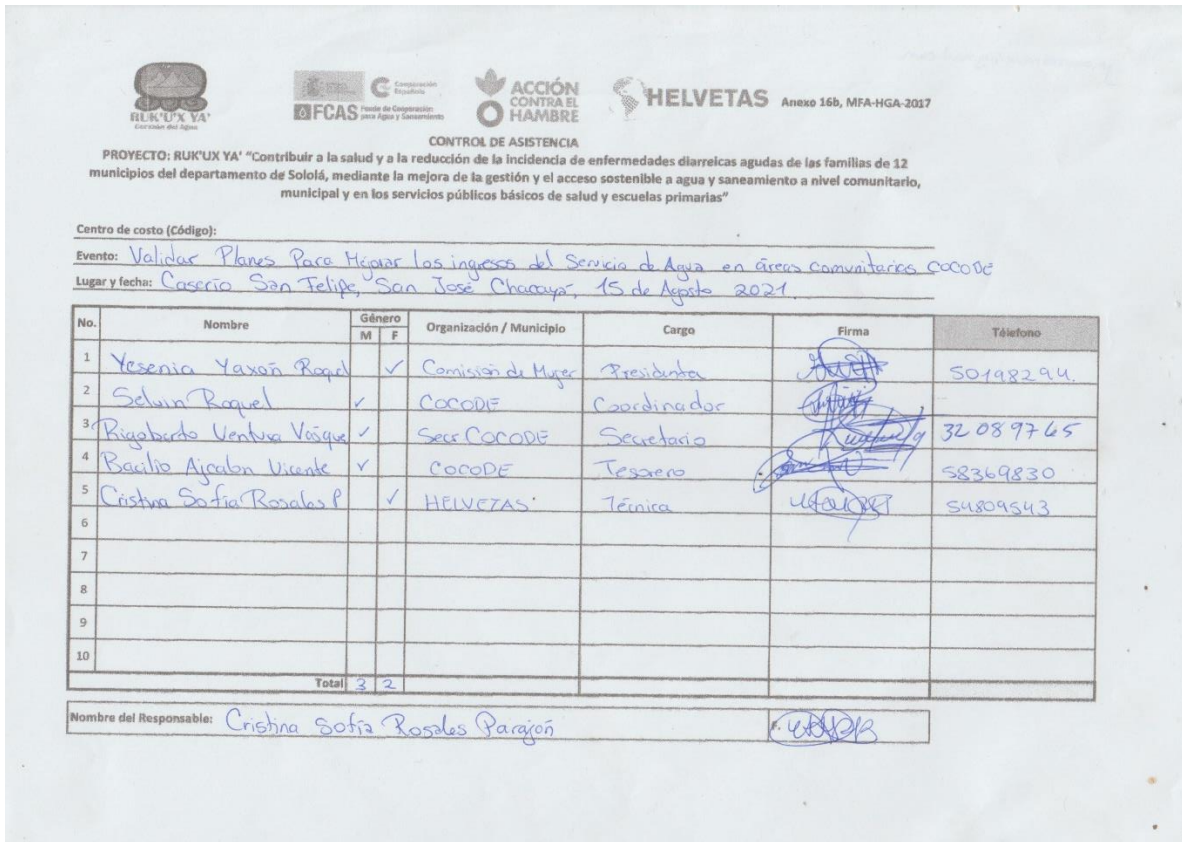 RUK'U'X YA'
Gestión del Agua
Cooperación Española
FCAS Fondo de Cooperación para Agua y Saneamiento
ACCIÓN CONTRA EL HAMBRE
HELVETAS Anexo 16b, MFA-HGA-2017
CONTROL DE ASISTENCIA
PROYECTO: RUK'UX YA' "Contribuir a la salud y a la reducción de la incidencia de enfermedades diarreicas agudas de las familias de 12
municipios del departamento de Sololá, mediante la mejora de la gestión y el acceso sostenible a agua y saneamiento a nivel comunitario,
municipal y en los servicios públicos básicos de salud y escuelas primarias"
Centro de costo (Código):
Evento: Validar Planes Para Mejorar los ingresos del Servicio de Agua en áreas comunitarias COCODE
Lugar y fecha: Caserío San Felipe, San José Chacayá, 15 de Agosto 2021.
No. Nombre Género M F Organización / Municipio Cargo Firma Télefono
1 Yesenia Yaxón Roquel ✓ Comisión de Mujer Presidenta 50198294.
2 Selvin Roquel ✓ COCODE Coordinador
3 Rigoberto Ventura Vásque ✓ Secr. COCODE Secretario 32089765
4 Basilio Ajcalon Vicente ✓ COCODE Tesorero 58369830
5 Cristina Sofía Rosales P ✓ HELVETAS Técnica 54809543
6
7
8
9
10
Total 3 2
Nombre del Responsable: Cristina Sofía Rosales Parajón F.